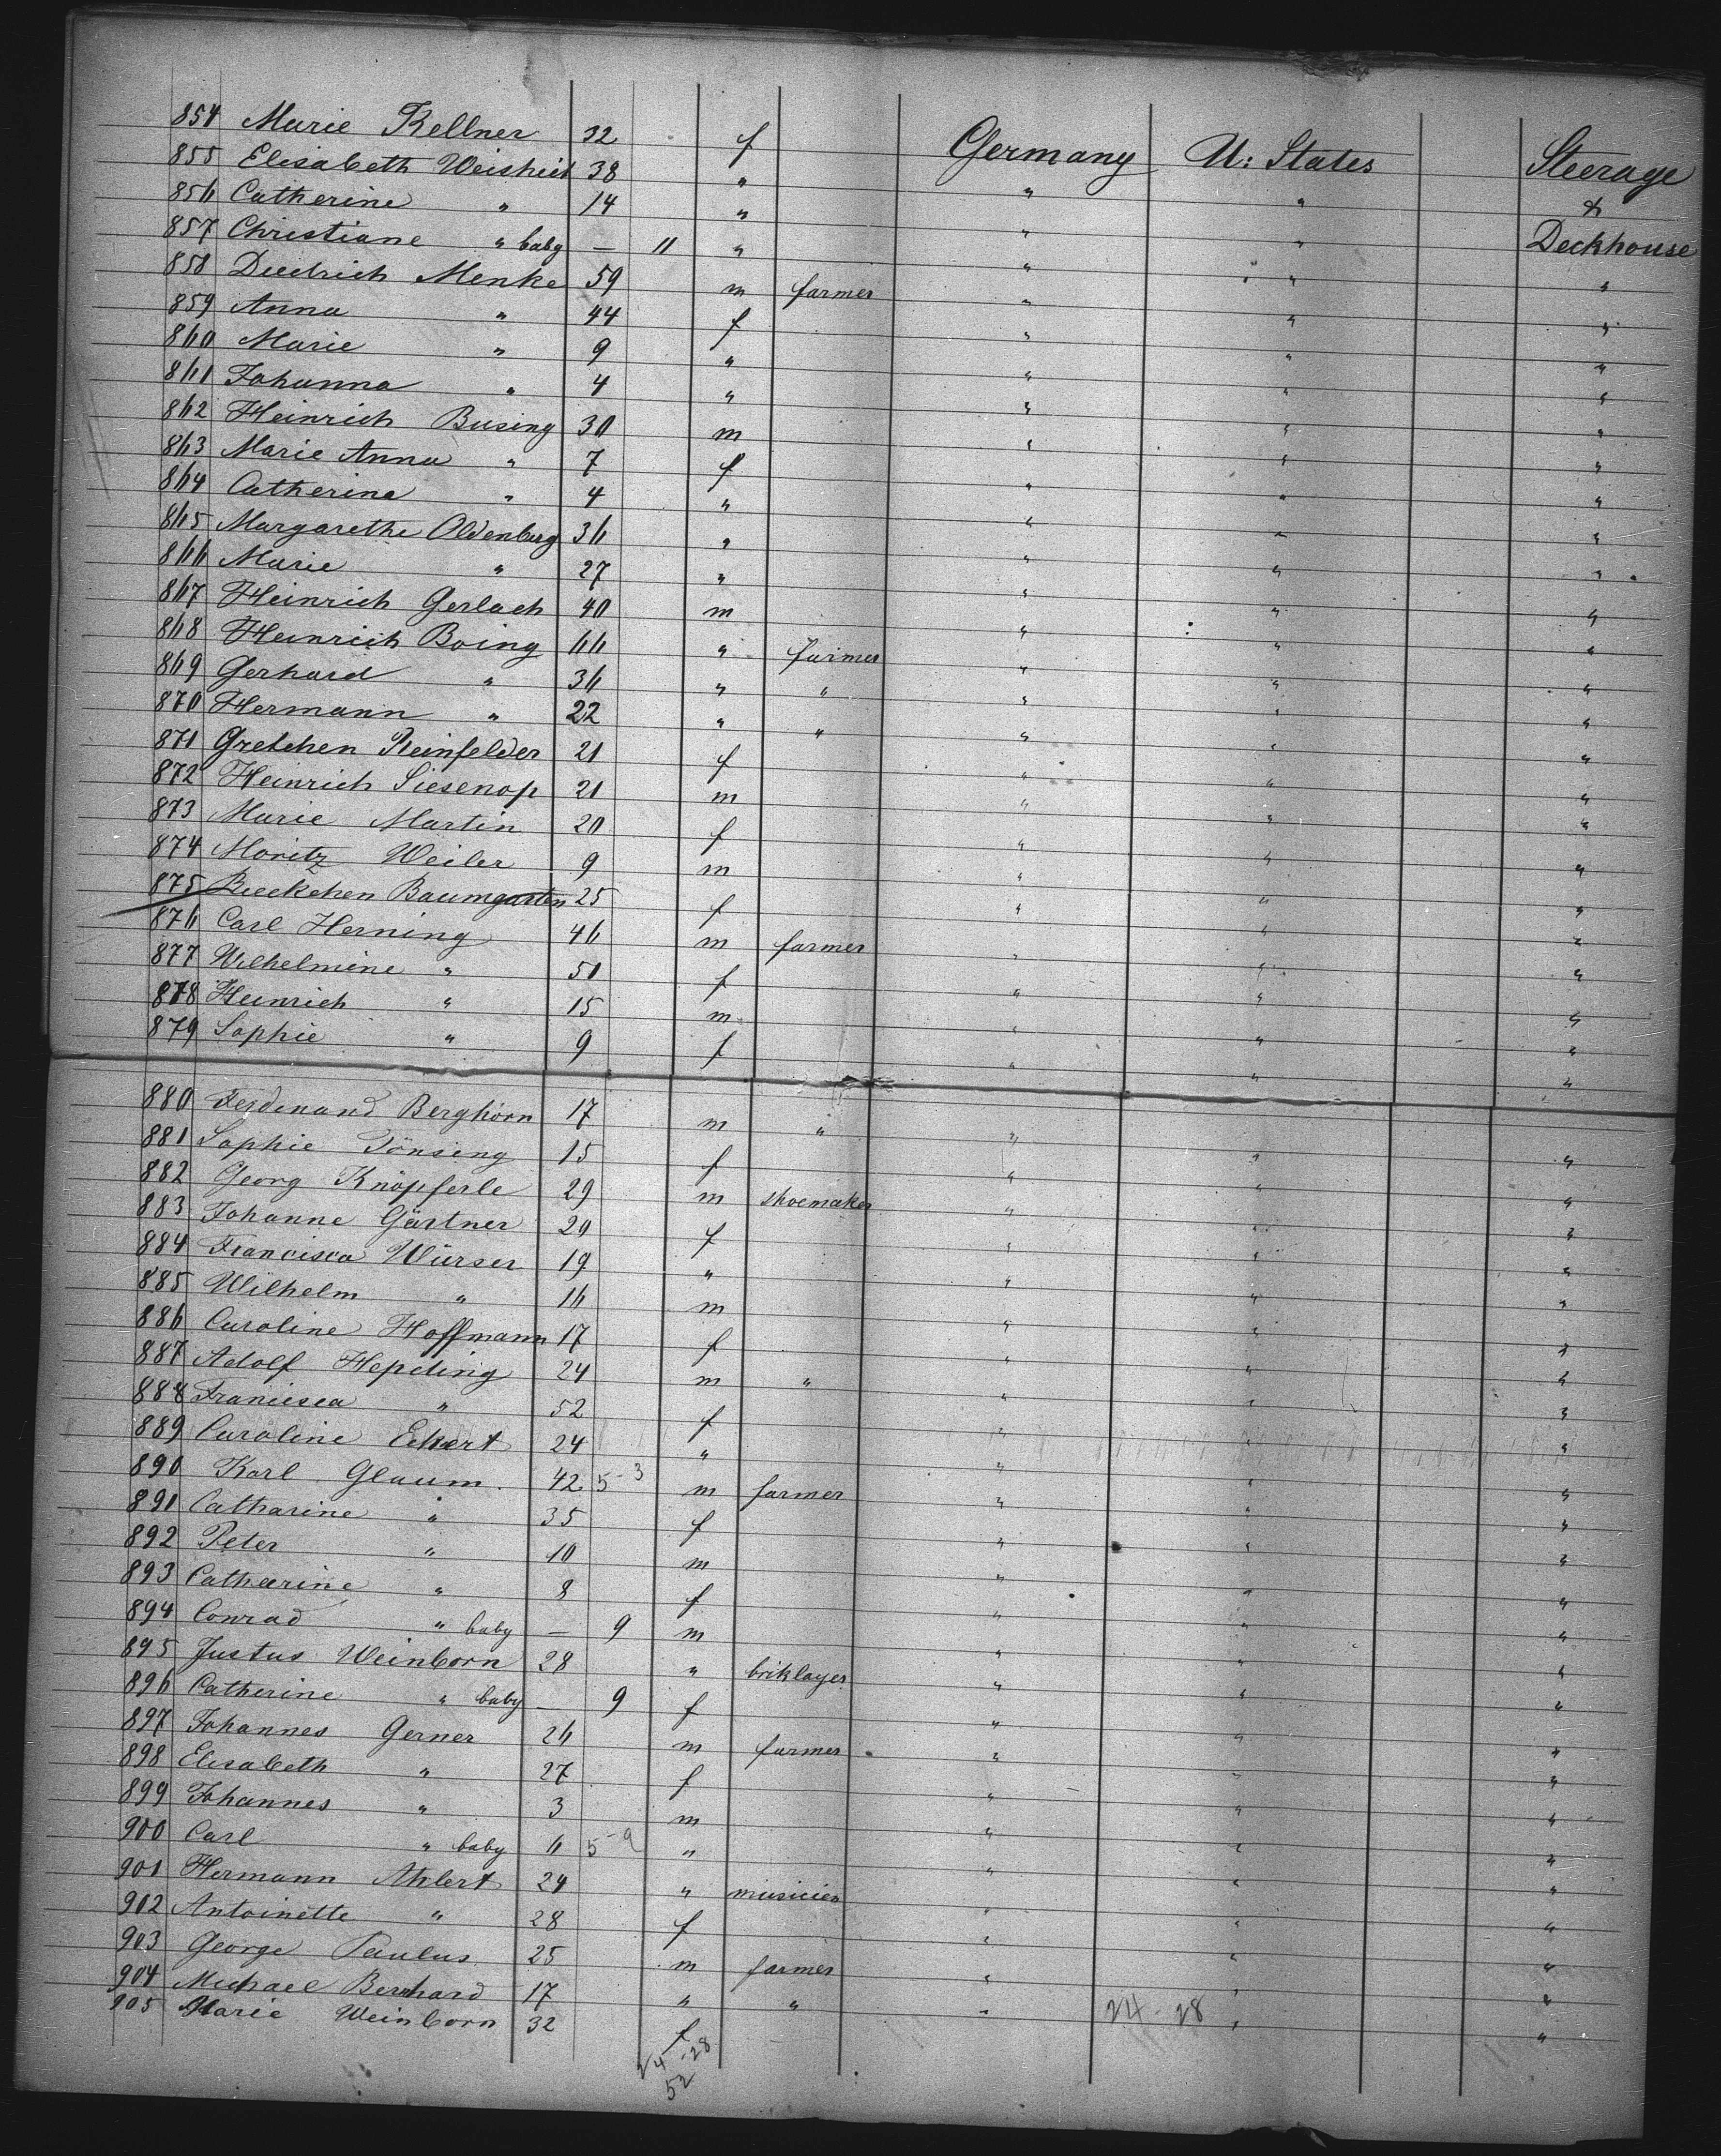 854 Marie Kellner 32 f Germany U: States Steerage
855 Elisabeth Weisheit 38 " " " &
856 Catherine " 14 " " " Deckhouse
857 Christiane " baby — 11 " " " "
858 Diedrich Menke 59 m farmer " " "
859 Anna " 44 f " " "
860 Marie " 9 " " " "
861 Johanna " 4 " " " "
862 Heinrich Busing 30 m " " "
863 Marie Anna " 7 f " " "
864 Catherine " 4 " " " "
865 Margarethe Oldenburg 36 " " " "
866 Marie " 27 " " " "
867 Heinrich Gerlach 40 m " " "
868 Heinrich Boing 66 " farmer " " "
869 Gerhard " 36 " " " " "
870 Hermann " 22 " " " " "
871 Gretchen Steinfelder 21 f " " "
872 Heinrich Siesenop 21 m " " "
873 Marie Martin 20 f " " "
874 Moritz Weiler 9 m " " "
875 Rieckchen Baumgarten 25 f " " "
876 Carl Herning 46 m farmer " " "
877 Wilhelmine " 51 f " " "
878 Heinrich " 15 m " " "
879 Sophie " 9 f " " "
880 Ferdinand Berghorn 17 m " " " "
881 Sophie Tönsing 15 f " " "
882 Georg Knöpferle 29 m shoemaker " " "
883 Johanne Gärtner 20 f " " "
884 Francisca Würser 19 " " " "
885 Wilhelm " 16 m " " "
886 Caroline Hoffmann 17 f " " "
887 Adolf Hepding 24 m " " " "
888 Franciesca " 52 f " " "
889 Caroline Eckert 24 " " " "
890 Karl Glaum. 42 5-3 m farmer " " "
891 Catharine " 35 f " " "
892 Peter " 10 m " " "
893 Catharine " 8 f " " "
894 Conrad " baby — 9 m " " "
895 Justus Weinborn 28 " briklayer " " "
896 Catherine " baby — 9 f " " "
897 Johannes Gerner 26 m farmer " " "
898 Elisabeth " 27 f " " "
899 Johannes " 3 m " " "
900 Carl " baby 6 5-9 " " " "
901 Hermann Ahlert 24 " musicien " " "
902 Antoinette " 28 f " " "
903 George Paulus 25 m farmer " " "
904 Michael Bernhard 17 " " " " "
905 Marie Weinborn 32 f " " "
24-28
24-28
52